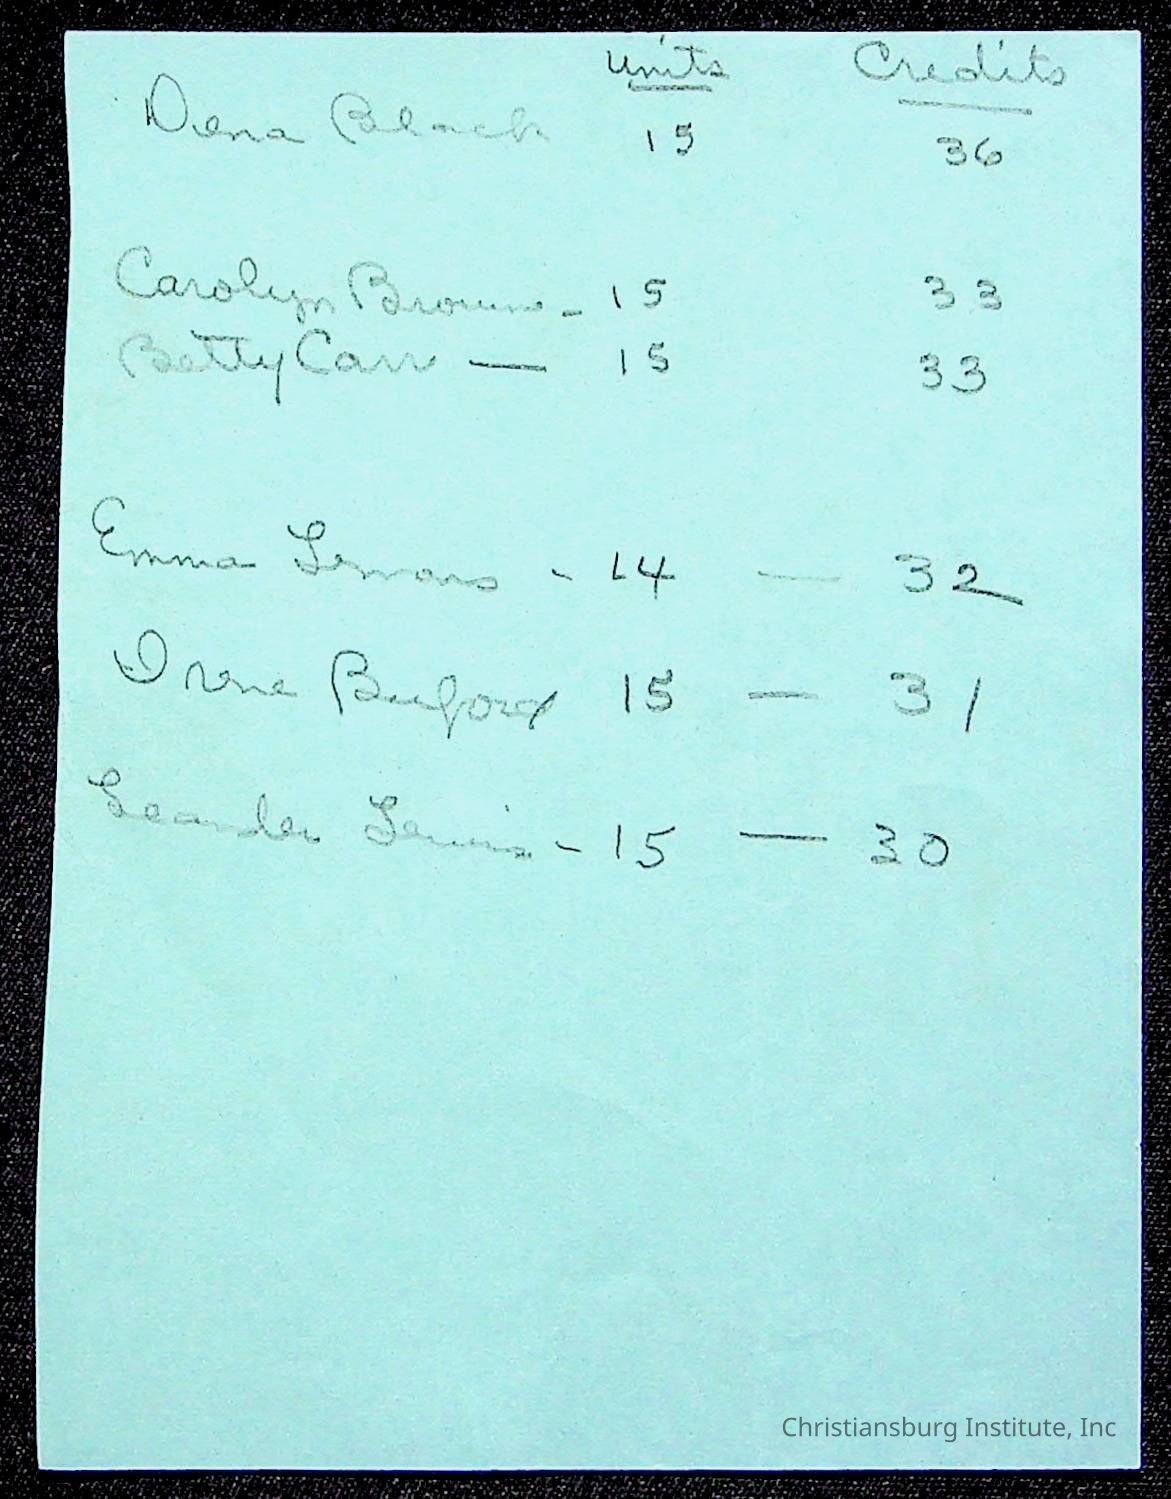 Units Credits
Dena Black 15 36
Carolyn Brown - 15 33
Betty Carr — 15 33
Emma - 14 — 32
Irene Buford 15 — 31
Leander Lewis - 15 — 30
Christiansburg Institute, Inc